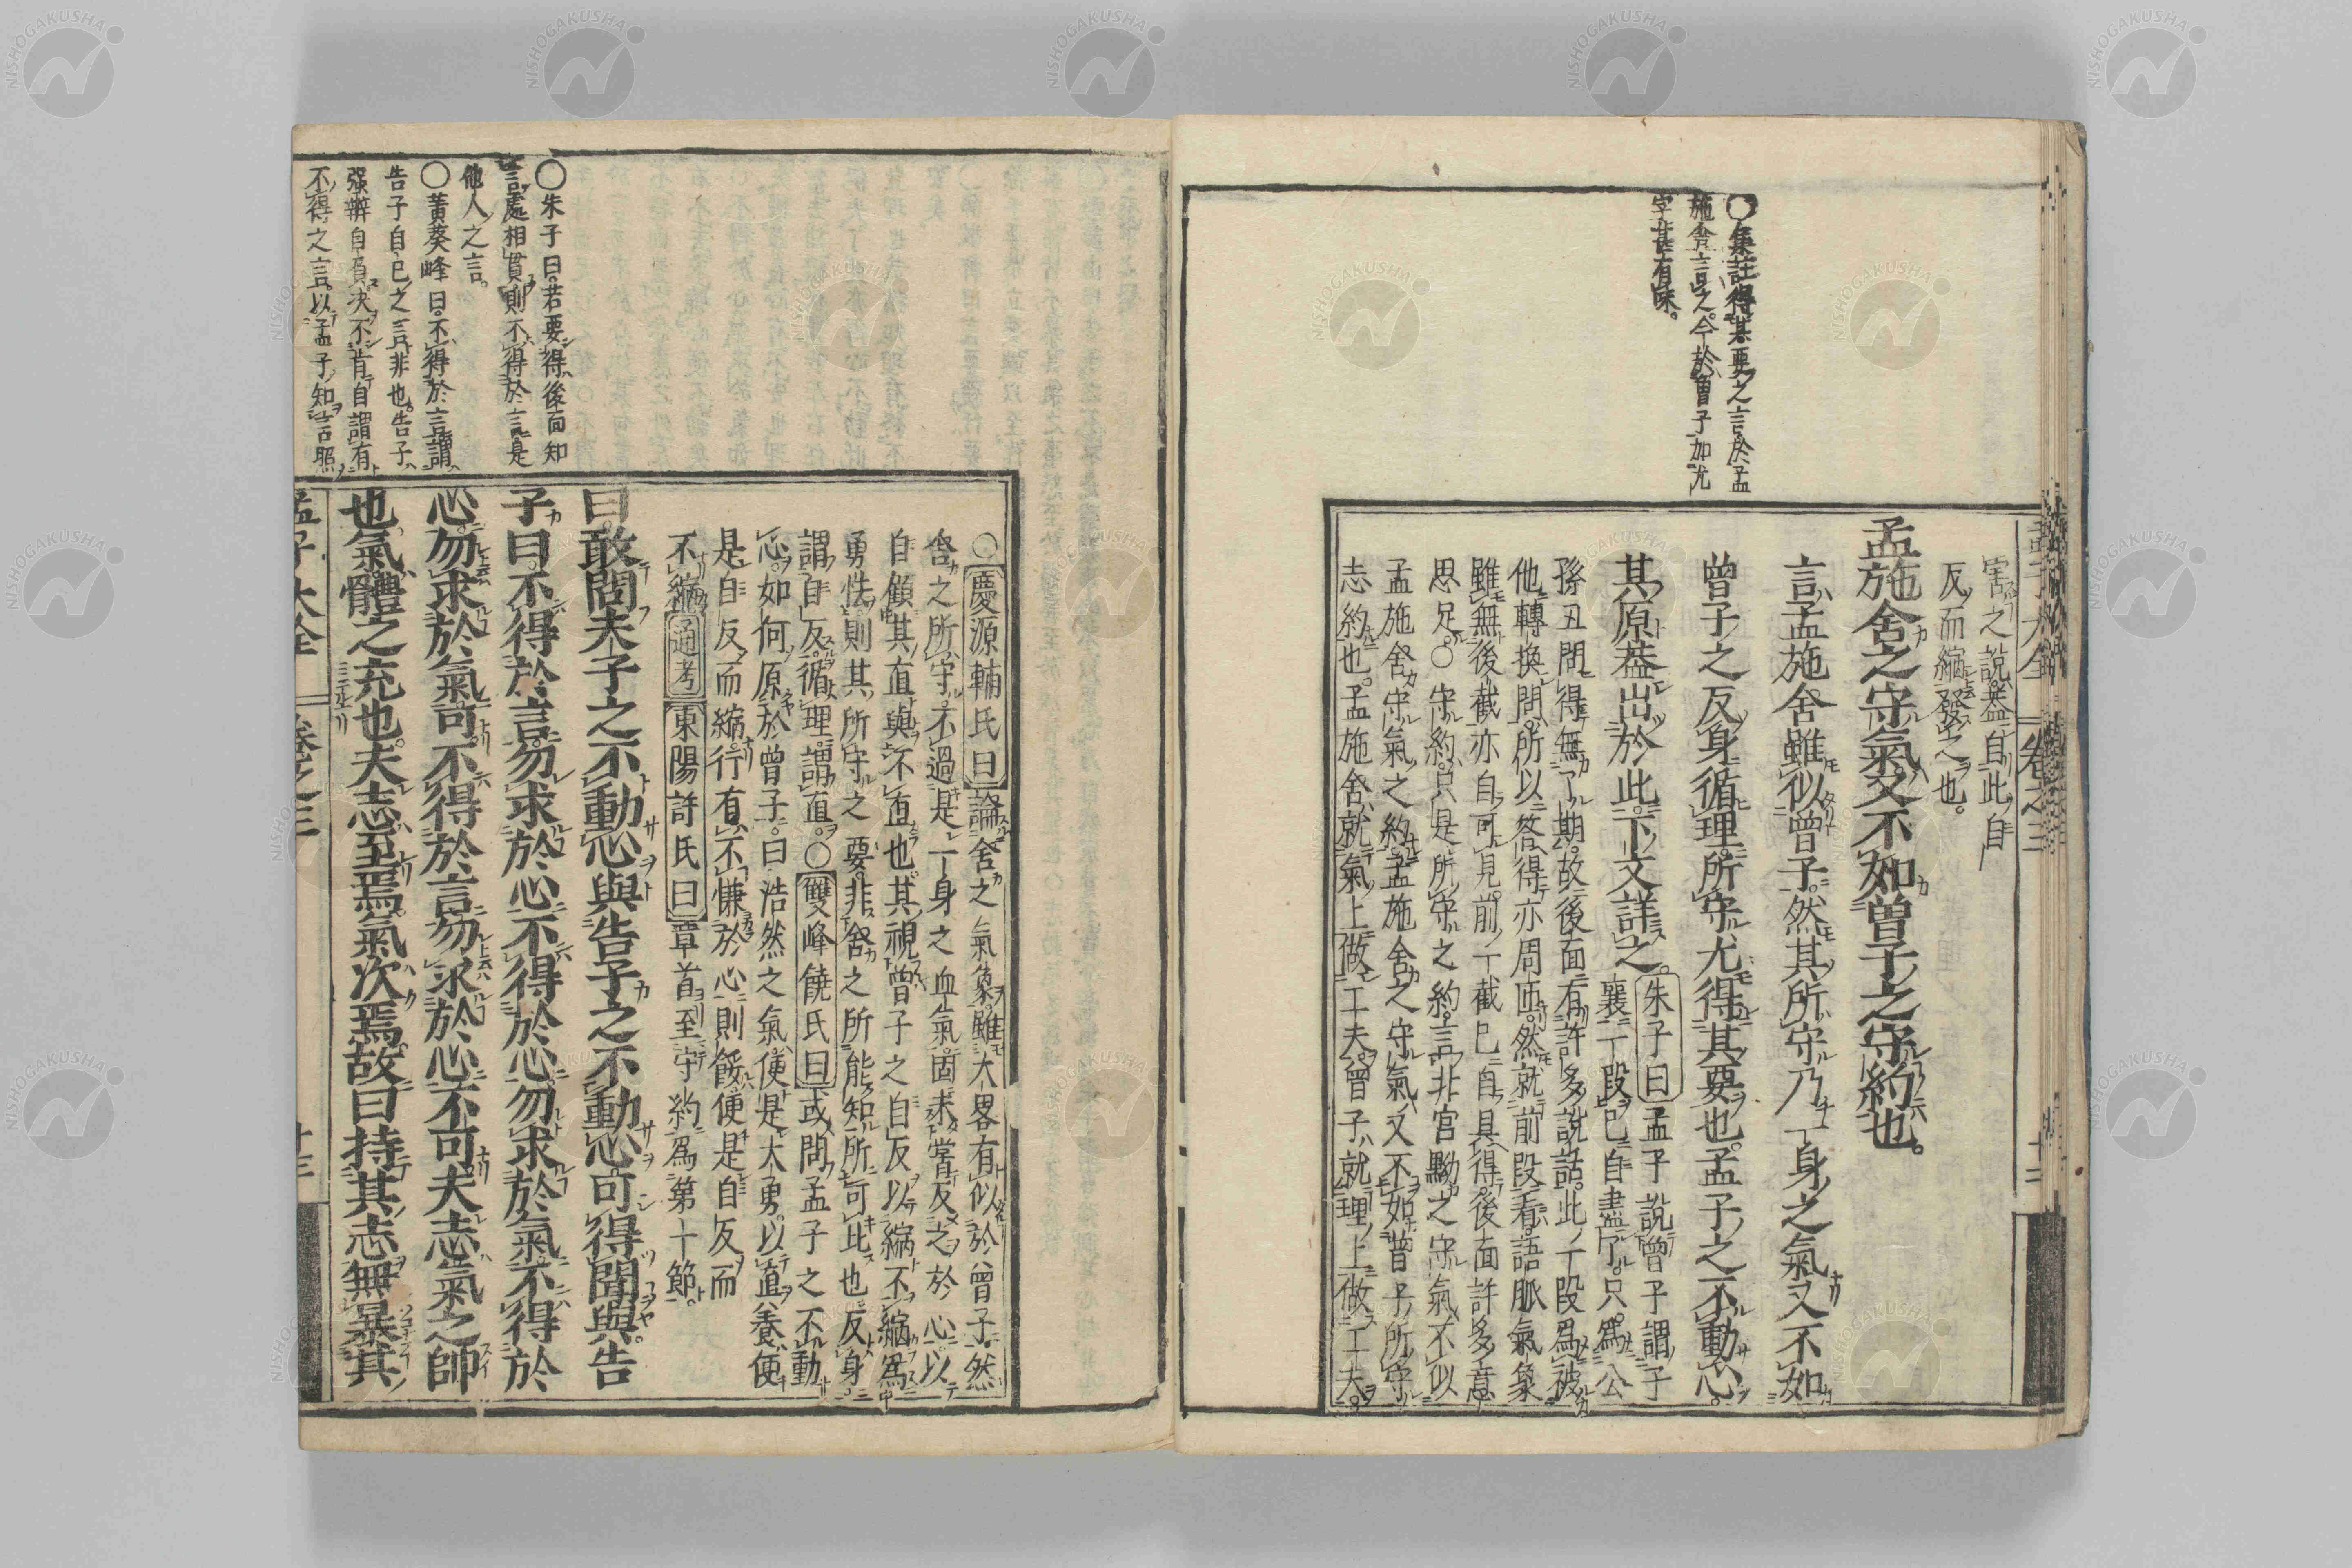 ○集註得其要之言於孟
施舍言之今於曽子加尤
字甚有味。
害之說。蓋自此自
反而縮發之也。
孟施舍之守氣又不如曽子之守約也。
言孟施舍雖似曽子然其所守乃一身之氣又不如
曽子之反身循理所守尤得其要也。孟子之不動心。
其原蓋出於此。下文詳之。
朱子曰孟子說曽子謂子
襄一段已自盡了。只為公
孫丑問得無了期。故後面有許多說話。此一段為被
他轉換問。所以答得亦周匝。然就前段看。語脈氣象
雖無後截亦自可見。前一截已自具得後面許多意
思足。○守約只是所守之約。言非宮黝之守氣不似
孟施舍守氣之約。孟施舍之守氣又不如曽子所守
志約也。孟施舍就氣上做工夫曽子就理上做工夫。
孟子大全
卷之三
十二
○朱子曰。若要得後面知
言處相貫則不得於言是
他人之言。
○黃葵峰曰。不得於言謂
告子自己之言非也。告子
強辨自負決不肯自謂有
不得之言。以孟子知言照
○慶源輔氏曰論舍之氣象雖大畧有似於曽子。然
舍之所守。不過是一身之血氣固未嘗反之於心以
自顧其直與不直也其視曽子之自反以縮不縮為
勇怯則其所守之要。非舍之所能知所可比也反身。
謂自反。循理。謂直。○雙峰饒氏曰或問孟子之不動
心。如何原於曽子。曰浩然之氣便是大勇。以直養便
是自反而縮。行有不慊於心則餒便是自反而
不縮通考東陽許氏曰章首至守約為第十節。
曰。敢問夫子之不動心與告子之不動心可得聞與告
子曰。不得於言勿求於心不得於心勿求於氣不得於
心。勿求於氣可。不得於言勿求於心不可夫志氣之師
也。氣體之充也。夫志至焉氣次焉故曰持其志無暴其
孟子大全
卷之三
十三